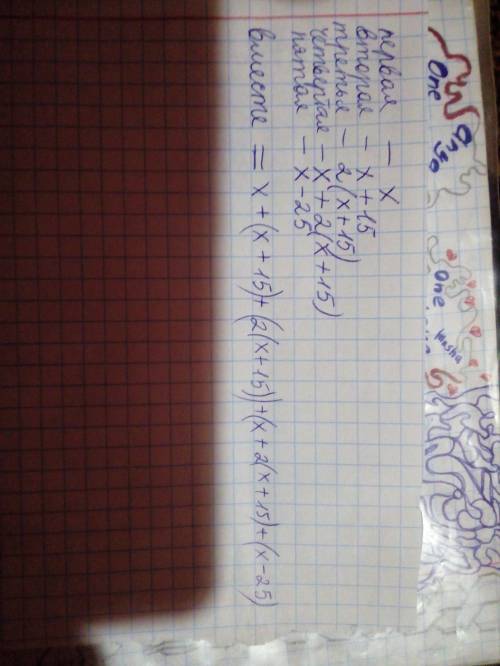 первая – x
вторая – x + 15
третья – 2(x+15)
четвертая – x + 2(x+15)
пятая – x - 25
вместе = x + (x + 15) + (2(x+15)) + (x + 2(x+15) + (x - 25)
One
One
Masha